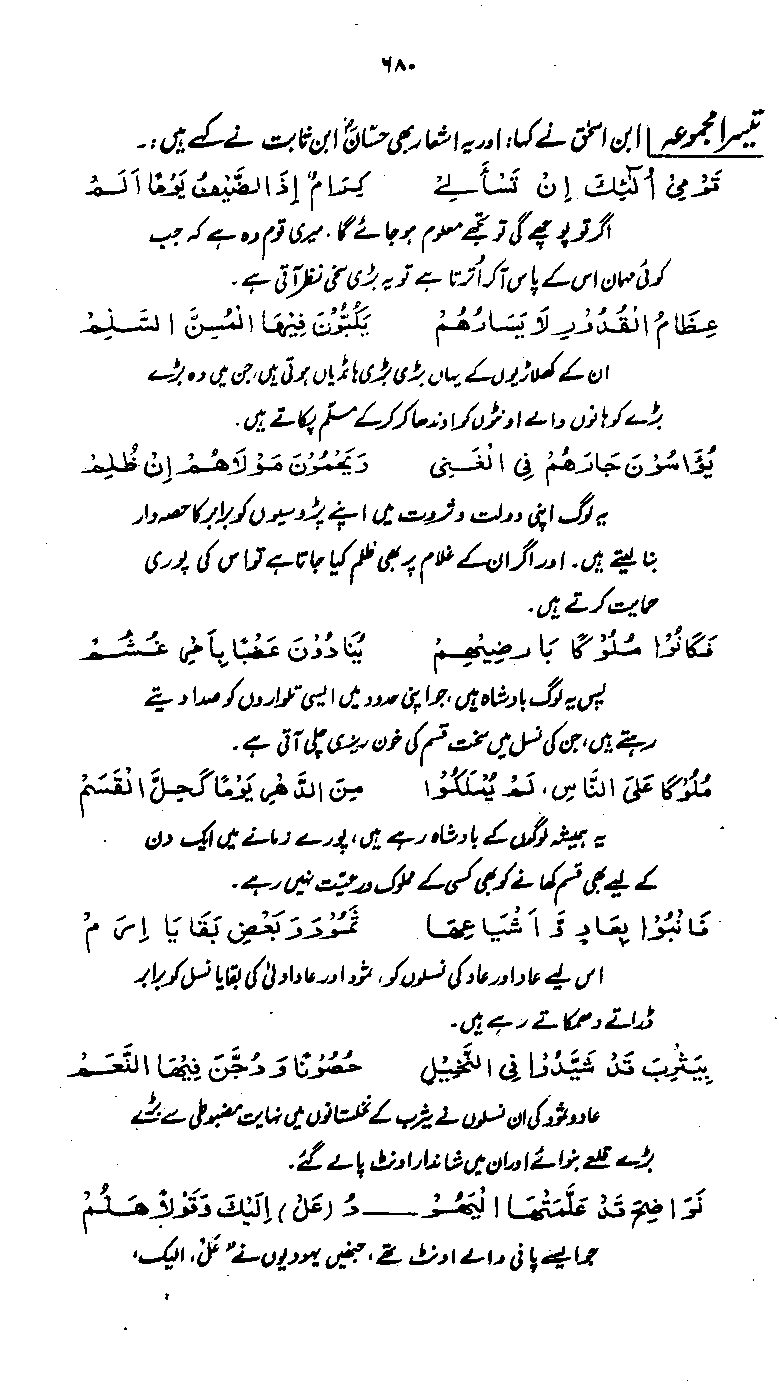 ۶۸۰
تیسرا مجموعہ ابن اسحٰق نے کہا: اور یہ اشعار بھی حسّانؓ ابن ثابت نے کہے ہیں:۔
قَوْمِیْ أُلٰئِكَ اِنْ تَسْأَلِیْ كِرَامٌ إِذَا الضَّيْفُ يَوْمًا اَلَمْ
اگر تو پوچھے گی تو تجھے معلوم ہو جائے گا۔ میری قوم وہ ہے کہ جب
کوئی مہمان اس کے پاس آکر اُترتا ہے تو یہ بڑی سخی نظر آتی ہے۔
عِظَامُ الْقُدُوْرِ لَايْسَارِهِمْ يَكُبُّوْنَ فِيْهَا الْمُسِنَّ السَّنِمْ
ان کے کھلاڑیوں کے یہاں بڑی بڑی ہانڈیاں ہوتی ہیں، جن میں وہ بڑے
بڑے کوہانوں والے اونٹوں کو اوندھا کر کر کے مسلّم پکاتے ہیں۔
يُؤَاسُوْنَ جَارَهُمْ فِى الْغَنِىْ وَيَحْمُوْنَ مَوْلَاهُمْ اِنْ ظُلِمْ
یہ لوگ اپنی دولت و ثروت میں اپنے پڑوسیوں کو برابر کا حصہ دار
بنا لیتے ہیں۔ اور اگر ان کے غلام پر بھی ظلم کیا جاتا ہے تو اس کی پوری
حمایت کرتے ہیں۔
فَكَانُوْا مُلُوْكًا بِاَرْضِيْهِمْ يُنَادُوْنَ عَضْبًا بِأَمْرِ غُشُمْ
پس یہ لوگ بادشاہ ہیں، جو اپنی حدود میں ایسی تلواروں کو صدا دیتے
رہتے ہیں، جن کی نسل میں سخت قسم کی خون ریزی چلی آتی ہے۔
مُلُوْكًا عَلَى النَّاسِ، لَمْ يُمْلَكُوْا مِنَ الدَّهْرِ يَوْمًا كَحِلِّ الْقَسَمْ
یہ ہمیشہ لوگوں کے بادشاہ رہے ہیں، پورے زمانے میں ایک دن
کے لیے بھی قسم کھانے کو بھی کسی کے مملوک و رعیّت نہیں رہے۔
فَانْبَوْا بِعَادٍ وَّ اَشْيَاعِهَا ثَمُوْدَ وَبَعْضِ بَقَايَا اِرَمْ
اس لیے عاد اور عاد کی نسلوں کو، ثمود اور عاد اولیٰ کی بقایا نسل کو برابر
ڈراتے دھمکاتے رہے ہیں۔
بِيَثْرِبَ قَدْ شَيَّدُوْا فِى النَّخِيْلِ حُصُوْنًا وَدُجِّنَ فِيْهَا النَّعَمْ
عاد و ثمود کی ان نسلوں نے یثرب کے نخلستانوں میں نہایت مضبوطی سے بڑے
بڑے قلعے بنوائے اور ان میں شاندار اونٹ پالے گئے۔
نَوَاضِحَ قَدْ عَلَّمَتْهَا الْيَهُوْـــدُ (عَلْ) اِلَيْكَ وَقَوْلًا هَلُمْ
جو ایسے پانی والے اونٹ تھے، جنھیں یہودیوں نے "عَلْ، الیک،